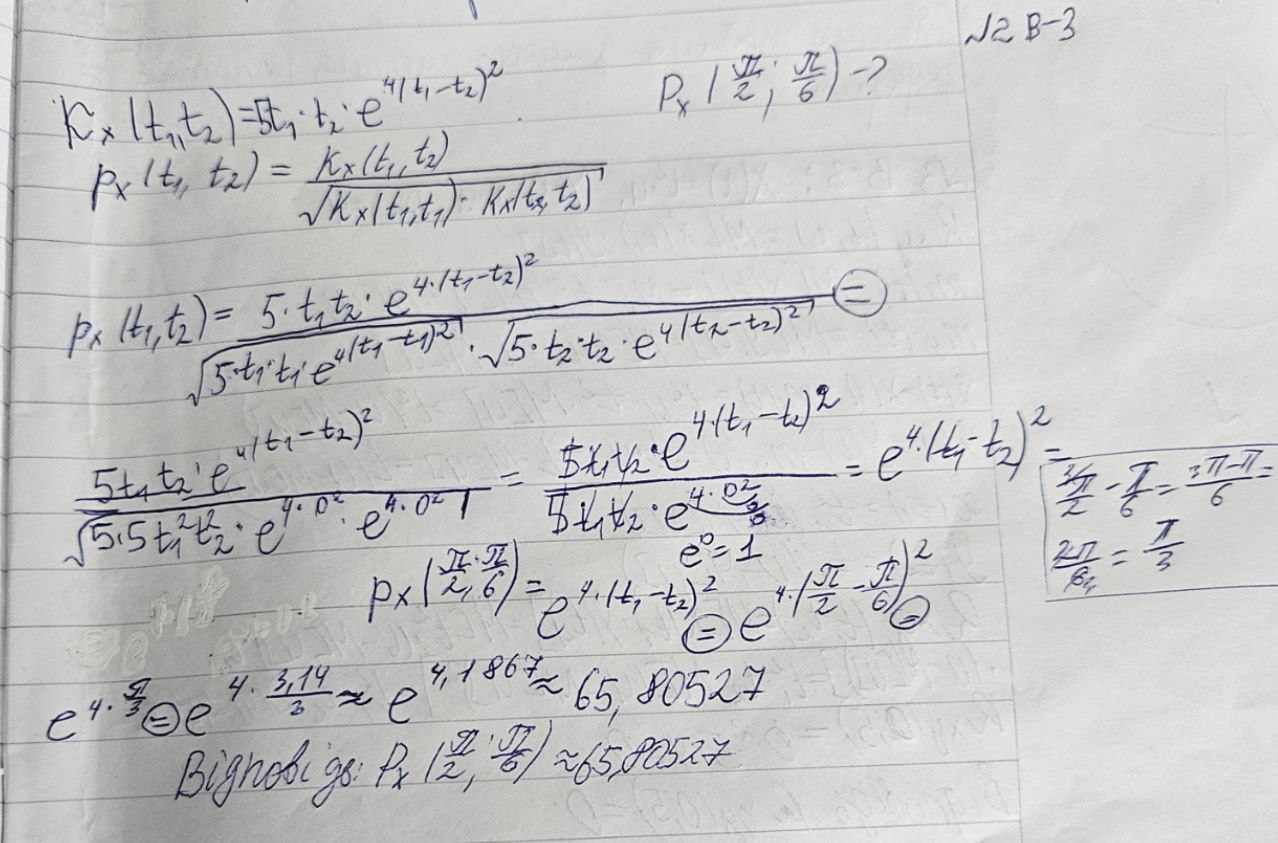 √2 В-3
Kx(t₁,t₂)=5t₁·t₂·e^{4(t₁-t₂)²} Px(π/2; π/6)-?
px(t₁, t₂) = Kx(t₁,t₂) / √(Kx(t₁,t₁)·Kx(t₂,t₂))
px(t₁,t₂)= 5·t₁t₂·e^{4·(t₁-t₂)²} / √(5·t₁·t₁·e^{4(t₁-t₁)²})·√(5·t₂·t₂·e^{4(t₂-t₂)²}) =
5t₁t₂·e^{4(t₁-t₂)²} / √(5·5t₁²t₂²·e^{4·0²}·e^{4·0²}) = 5t₁t₂·e^{4·(t₁-t₂)²} / 5t₁t₂·e^{4·0²} = e^{4·(t₁-t₂)²} =
e⁰=1
³π/2 - π/6 = 3π-π/6 =
2π/6 = π/3
px(π/2; π/6) = e^{4·(t₁-t₂)²} = e^{4·(π/2-π/6)²} =
e^{4·π/3} = e^{4·3,14/3} ≈ e^{4,1867} ≈ 65,80527
Відповідь: Px(π/2; π/6) ≈65,80527